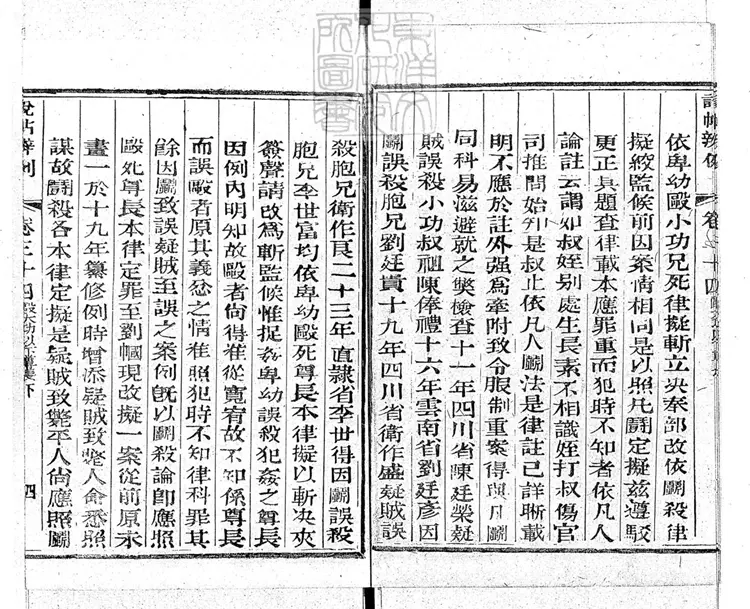 說帖辨例
卷三十四
依卑幼毆小功兄死律擬斬立決奉部改依鬬殺律
擬絞監候前因案情相同是以照凡鬬定擬茲遵駁
更正具題查律載本應罪重而犯時不知者依凡人
論註云謂如叔姪别處生長素不相識姪打叔傷官
司推問始知是叔止依凡人鬬法是律註已詳晰載
明不應於註外强爲牽附致令服制重案得與凡鬬
同科易滋避就之獘檢查十一年四川省陳廷榮疑
賊誤殺小功叔祖陳俸禮十六年雲南省劉廷彦因
鬬誤殺胞兄劉廷貴十九年四川省衛作盛疑賊誤
殺胞兄衛作良二十三年直隷省李世得因鬬誤殺
胞兄李世富均依卑幼毆死尊長本律擬以斬决夾
簽聲請改爲斬監候惟捉姦卑幼誤殺犯姦之尊長
因例內明知故毆者尙得准從寬宥故不知係尊長
而誤毆者原其義忿之情准照犯時不知律科罪其
餘因鬬致誤疑賊至誤之案例旣以鬬殺論卽應照
毆死尊長本律定罪至劉幗現改擬一案從前原未
畫一於十九年纂修例時增添疑賊致斃人命悉照
謀故鬬殺各本律定擬是疑賊致斃平人尙應照鬬
說帖辨例
卷三十四
四